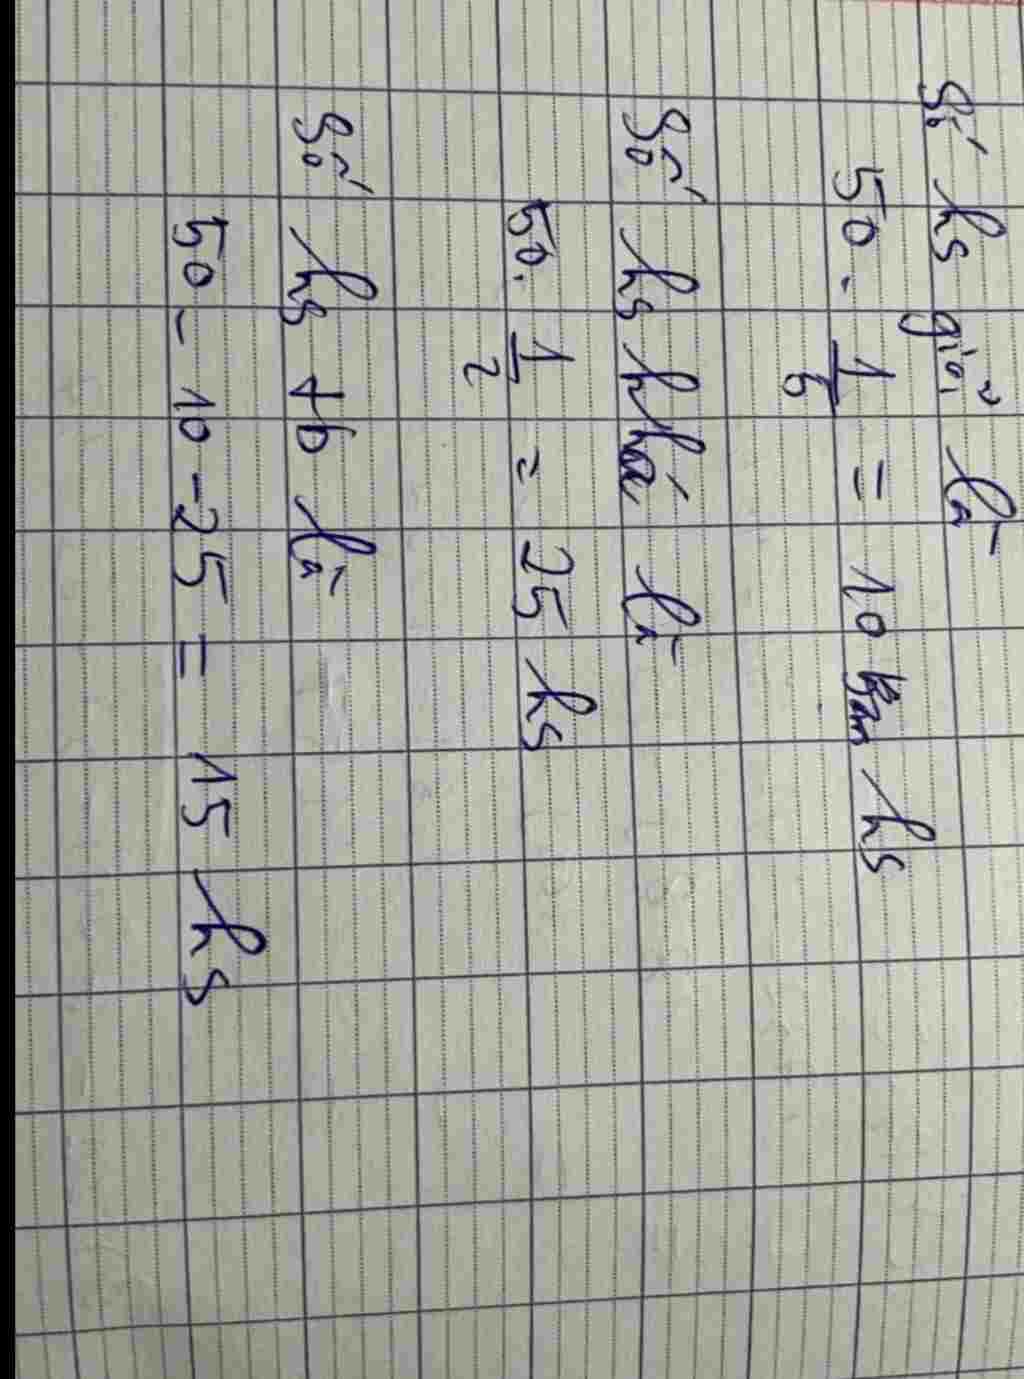 Số hs giỏi là
50 . 1/5 = 10 hs
Số hs khá là
50 . 1/2 = 25 hs
Số hs tb là
50 - 10 - 25 = 15 hs